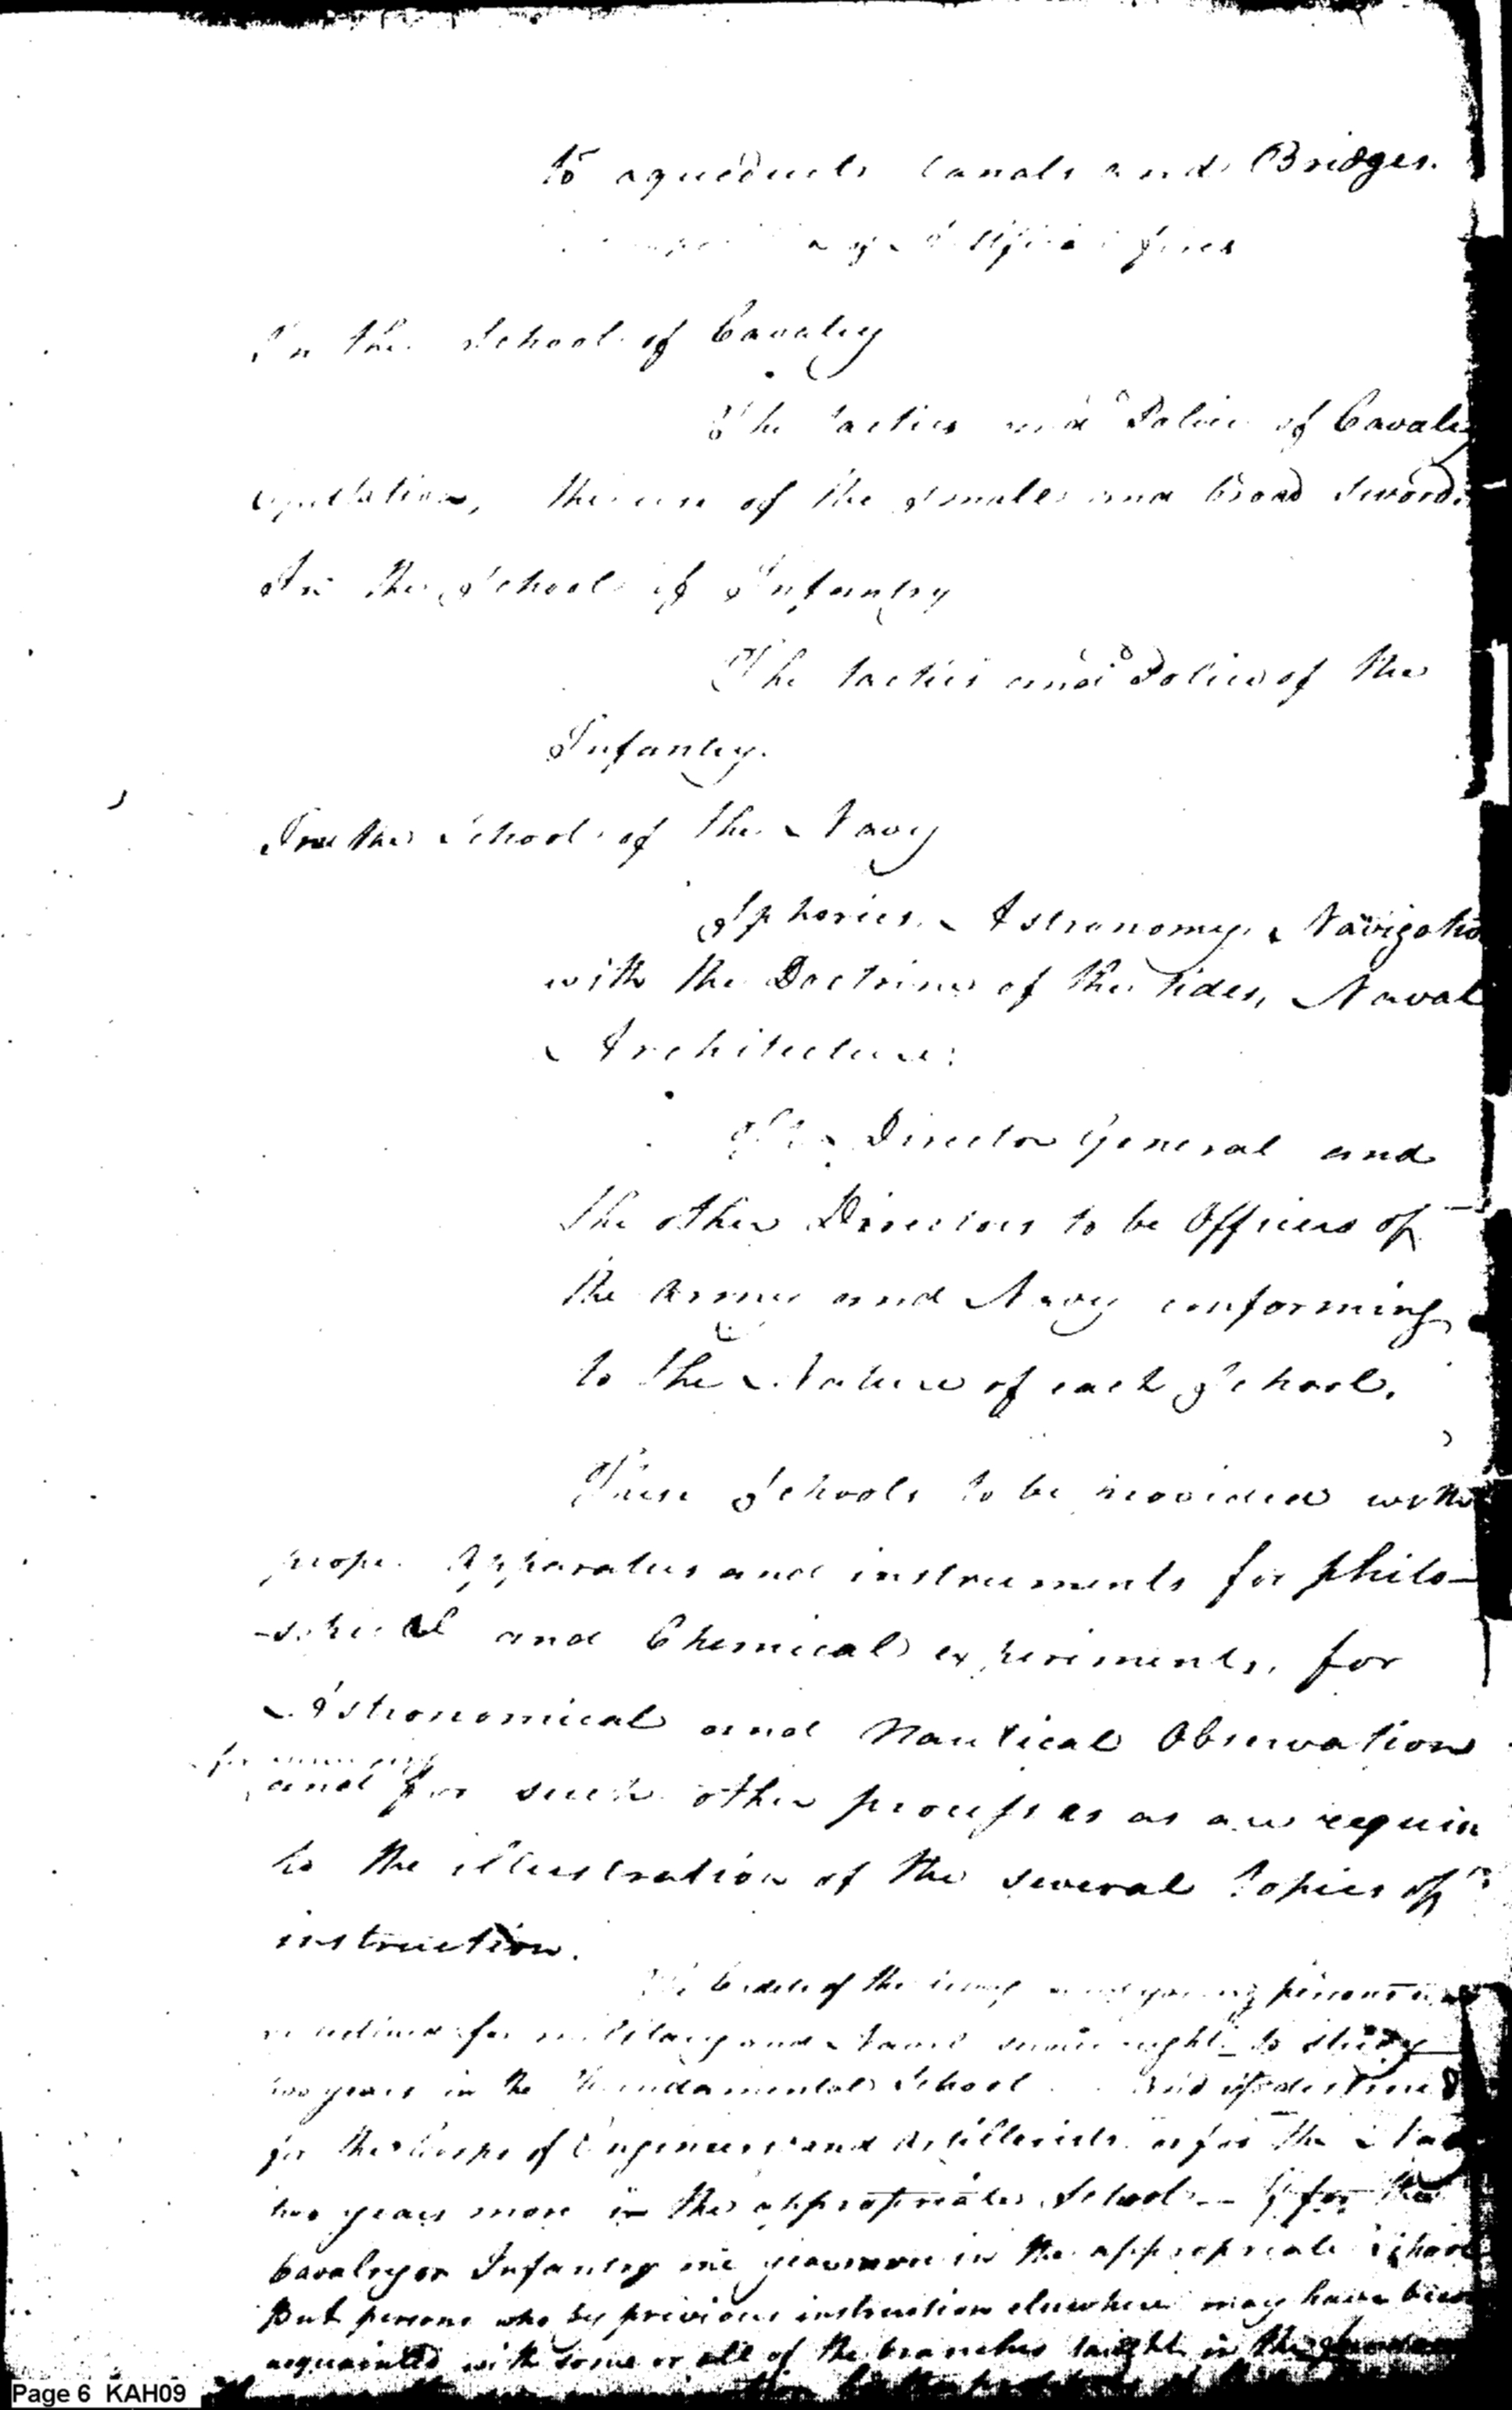 to aqueducts canals and Bridges.
fires
In the School of Cavalry
The tactics and Police of Cavalry
equitation, the use of the small and broad sword.
In the School of Infantry
The tactics and Police of the
Infantry.
In the School of the Navy
Spherics, Astronomy, Navigatio
with the Doctrine of the tides, Naval
Architecture.
The Director General and
the other Directors to be Officers of
the Army and Navy conforming
to the Nature of each School.
These Schools to be provided with
proper Apparatus and instruments for philo-
-sophical and Chemical experiments, for
Astronomical and Nautical Observation
for
and for such other processes as are requis
to the illustration of the several topics of
instruction.
The Cadets of the Army and young persons
destined for military and Naval service ought to study
two years in the Fundamental School. And if destined
for the Corps of Engineers and Artillerists or for the Nav
two years more in the appropriate School -- if for the
Cavalry or Infantry one year more in the appropriate School
But persons who by previous instruction elsewhere may have been
acquainted with some or all of the branches taught in the
Page 6 KAH09